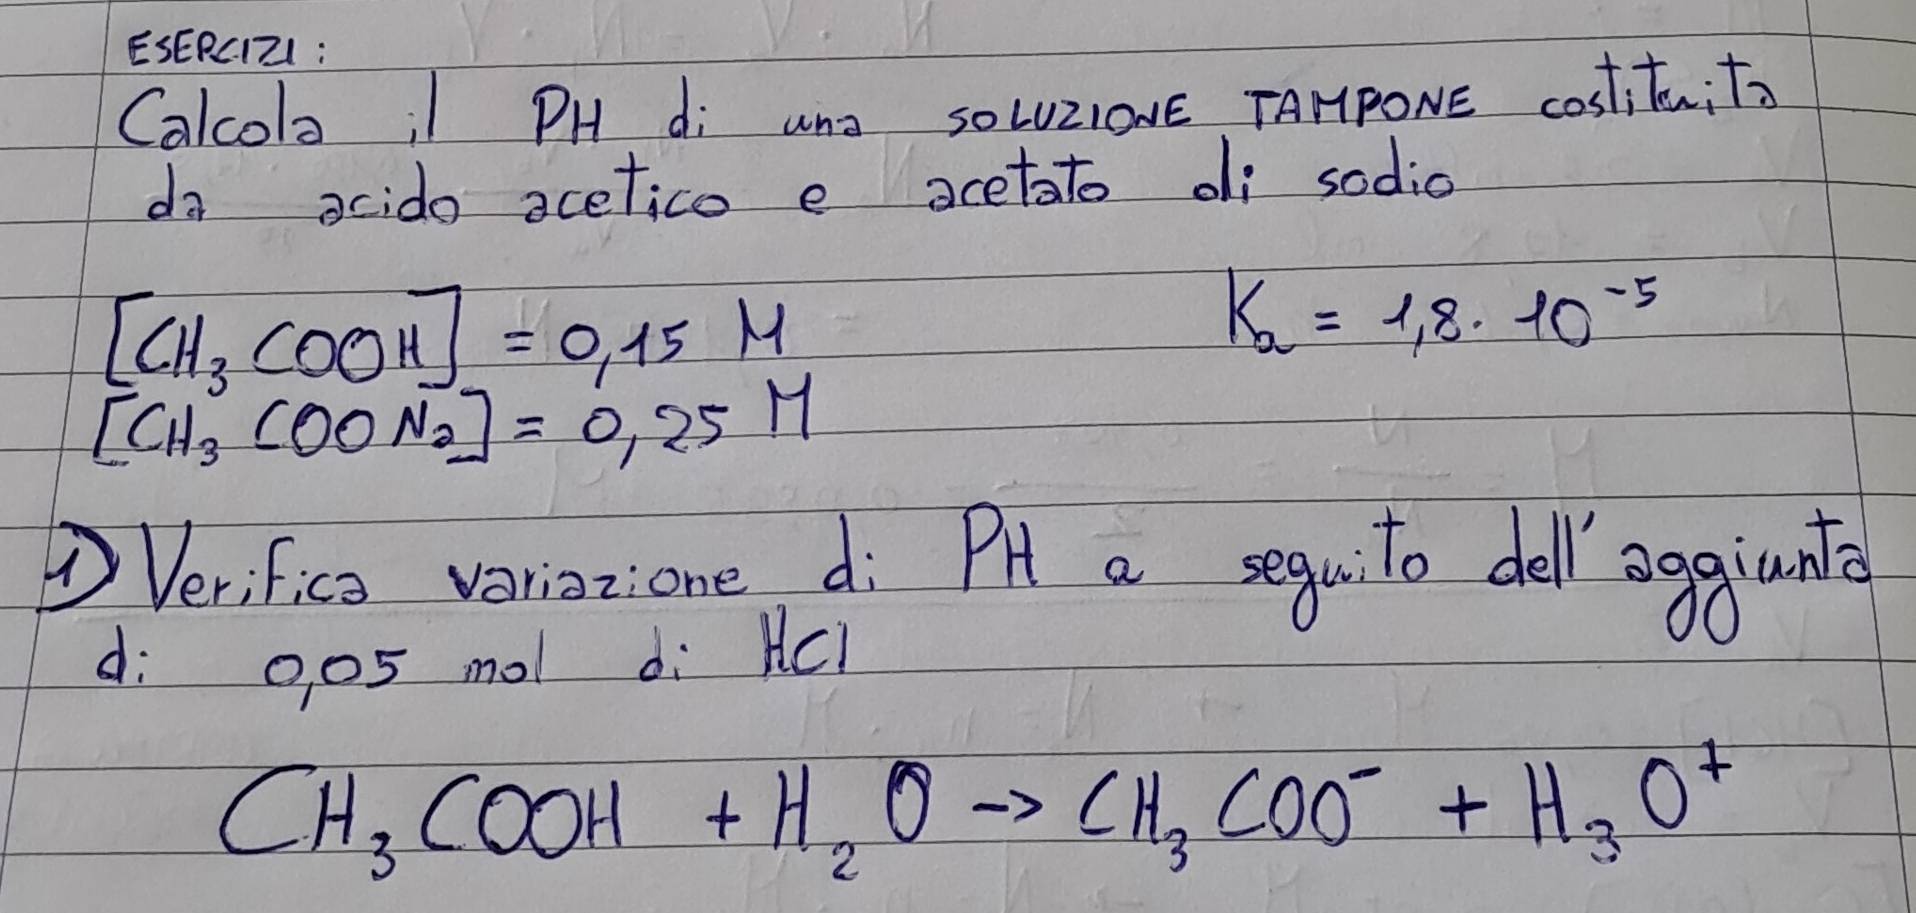 ESERCIZI:
Calcola il PH di una SOLUZIONE TAMPONE costituita
da acido acetico e acetato di sodio
[CH₃COOH] = 0,15 M Kₐ = 1,8 · 10⁻⁵
[CH₃COONa] = 0,25 M
1) Verifica variazione di PH a seguito dell'aggiunta
di 0,05 mol di HCl
CH₃COOH + H₂O -> CH₃COO⁻ + H₃O⁺